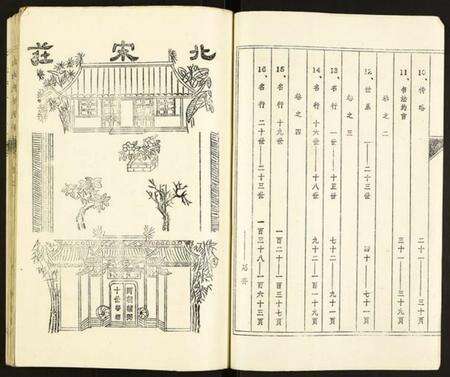 10. 传略 二十一——三十页
11. 书法约言 三十一——三十九页
卷之二
12. 世系 一——二十三世 四十——七十一页
卷之三
13. 名行 一世——十五世 七十二——九十一页
14. 名行 十六世——十八世 九十二——一百十九页
卷之四
15. 名行 十九世 一百二十——一百三十七页
16. 名行 二十世——二十三世 一百三十八——一百六十三页
北宋莊